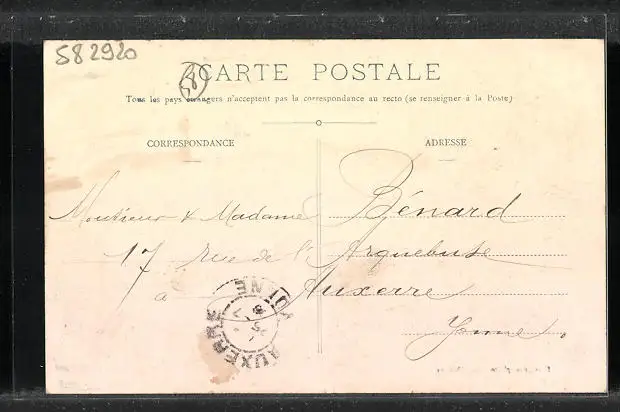 582920
58
CARTE POSTALE
Tous les pays étrangers n'acceptent pas la correspondance au recto (se renseigner à la Poste)
CORRESPONDANCE
ADRESSE
Monsieur & Madame Bénard
17 rue de l'Arquebuse
à Auxerre
Yonne
AUXERRE YONNE